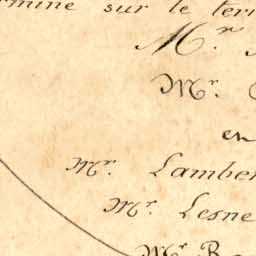 rmine sur le ter
Mr.
Mr.
en
Mr. Lambe
Mr. Lesne
Mr. B